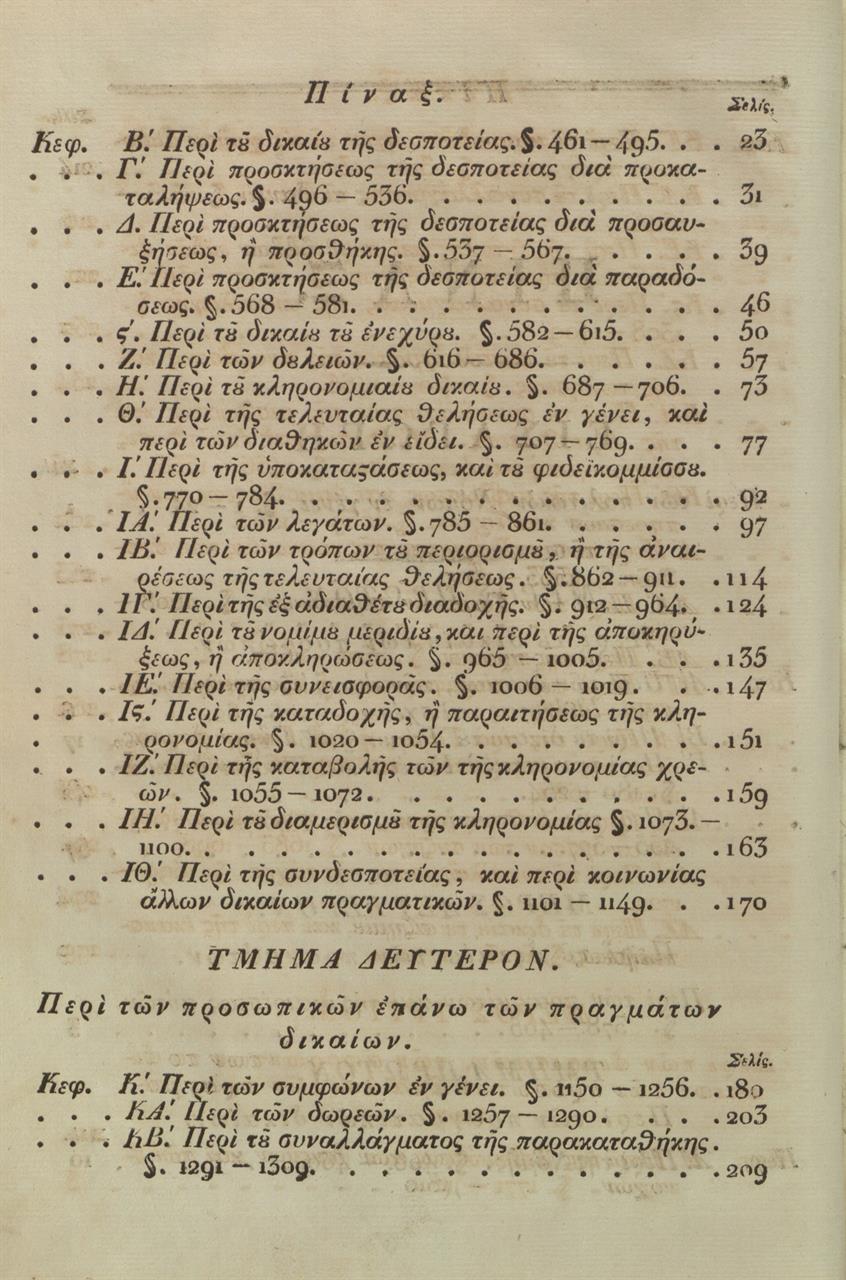 Πίναξ.
Σελίς.
Κεφ. Β.' Περὶ τȣ͂ δικαίȣ τῆς δεσποτείας. §. 461 — 495. . . 23
. . . Γ.' Περὶ προσκτήσεως τῆς δεσποτείας διὰ προκα-
ταλήψεως. §. 496 — 536. . . . . . . . . . 31
. . . Δ. Περὶ προσκτήσεως τῆς δεσποτείας διὰ προσαυ-
ξήσεως, ἢ προσθήκης. §. 537 — 567. . . . . . 39
. . . Ε.' Περὶ προσκτήσεως τῆς δεσποτείας διὰ παραδό-
σεως. §. 568 — 581. . . . . . . . . . . . 46
. . . ϛ'. Περὶ τȣ͂ δικαίȣ τȣ͂ ἐνεχύρȣ. §. 582 — 615. . . . 50
. . . Ζ.' Περὶ τῶν δȣλειῶν. §. 616 — 686. . . . . . 57
. . . Η.' Περὶ τȣ͂ κληρονομιαίȣ δικαίȣ. §. 687 — 706. . 73
. . . Θ.' Περὶ τῆς τελευταίας θελήσεως ἐν γένει, καὶ
περὶ τῶν διαθηκῶν ἐν εἴδει. §. 707 — 769. . . . 77
. . . Ι.' Περὶ τῆς ὑποκαταϛάσεως, καὶ τȣ͂ φιδεϊκομμίσσȣ.
§. 770 — 784. . . . . . . . . . . . . . 92
. . . ΙΑ.' Περὶ τῶν λεγάτων. §. 785 — 861. . . . . . 97
. . . ΙΒ.' Περὶ τῶν τρόπων τȣ͂ περιορισμȣ͂, ἢ τῆς ἀναι-
ρέσεως τῆς τελευταίας θελήσεως. §. 862 — 911. . 114
. . . ΙΓ.' Περὶ τῆς ἐξ ἀδιαθέτȣ διαδοχῆς. §. 912 — 964. . 124
. . . ΙΔ.' Περὶ τȣ͂ νομίμȣ μεριδίȣ, και περὶ τῆς ἀποκηρύ-
ξεως, ἢ ἀποκληρώσεως. §. 965 — 1005. . . . 135
. . . ΙΕ.' Περὶ τῆς συνεισφορᾶς. §. 1006 — 1019. . . 147
. . . Ιϛ.' Περὶ τῆς καταδοχῆς, ἢ παραιτήσεως τῆς κλη-
. ρονομίας. §. 1020 — 1054. . . . . . . . . 151
. . . ΙΖ.' Περὶ τῆς καταβολῆς τῶν τῆς κληρονομίας χρε-
ῶν. §. 1055 — 1072. . . . . . . . . . . 159
. . . ΙΗ.' Περὶ τȣ͂ διαμερισμȣ͂ τῆς κληρονομίας §. 1073. —
1100. . . . . . . . . . . . . . . . . 163
. . . ΙΘ.' Περὶ τῆς συνδεσποτείας, καὶ περὶ κοινωνίας
ἄλλων δικαίων πραγματικῶν. §. 1101 — 1149. . . 170
ΤΜΗΜΑ ΔΕΥΤΕΡΟΝ.
Περὶ τῶν προσωπικῶν ἐπάνω τῶν πραγμάτων
δικαίων.
Σελίς.
Κεφ. Κ.' Περὶ τῶν συμφώνων ἐν γένει. §. 1150 — 1256. . 180
. . . ΚΑ.' Περὶ τῶν δωρεῶν. §. 1257 — 1290. . . . . 203
. . . ΚΒ.' Περὶ τȣ͂ συναλλάγματος τῆς παρακαταθήκης.
§. 1291 — 1309. . . . . . . . . . . . . 209